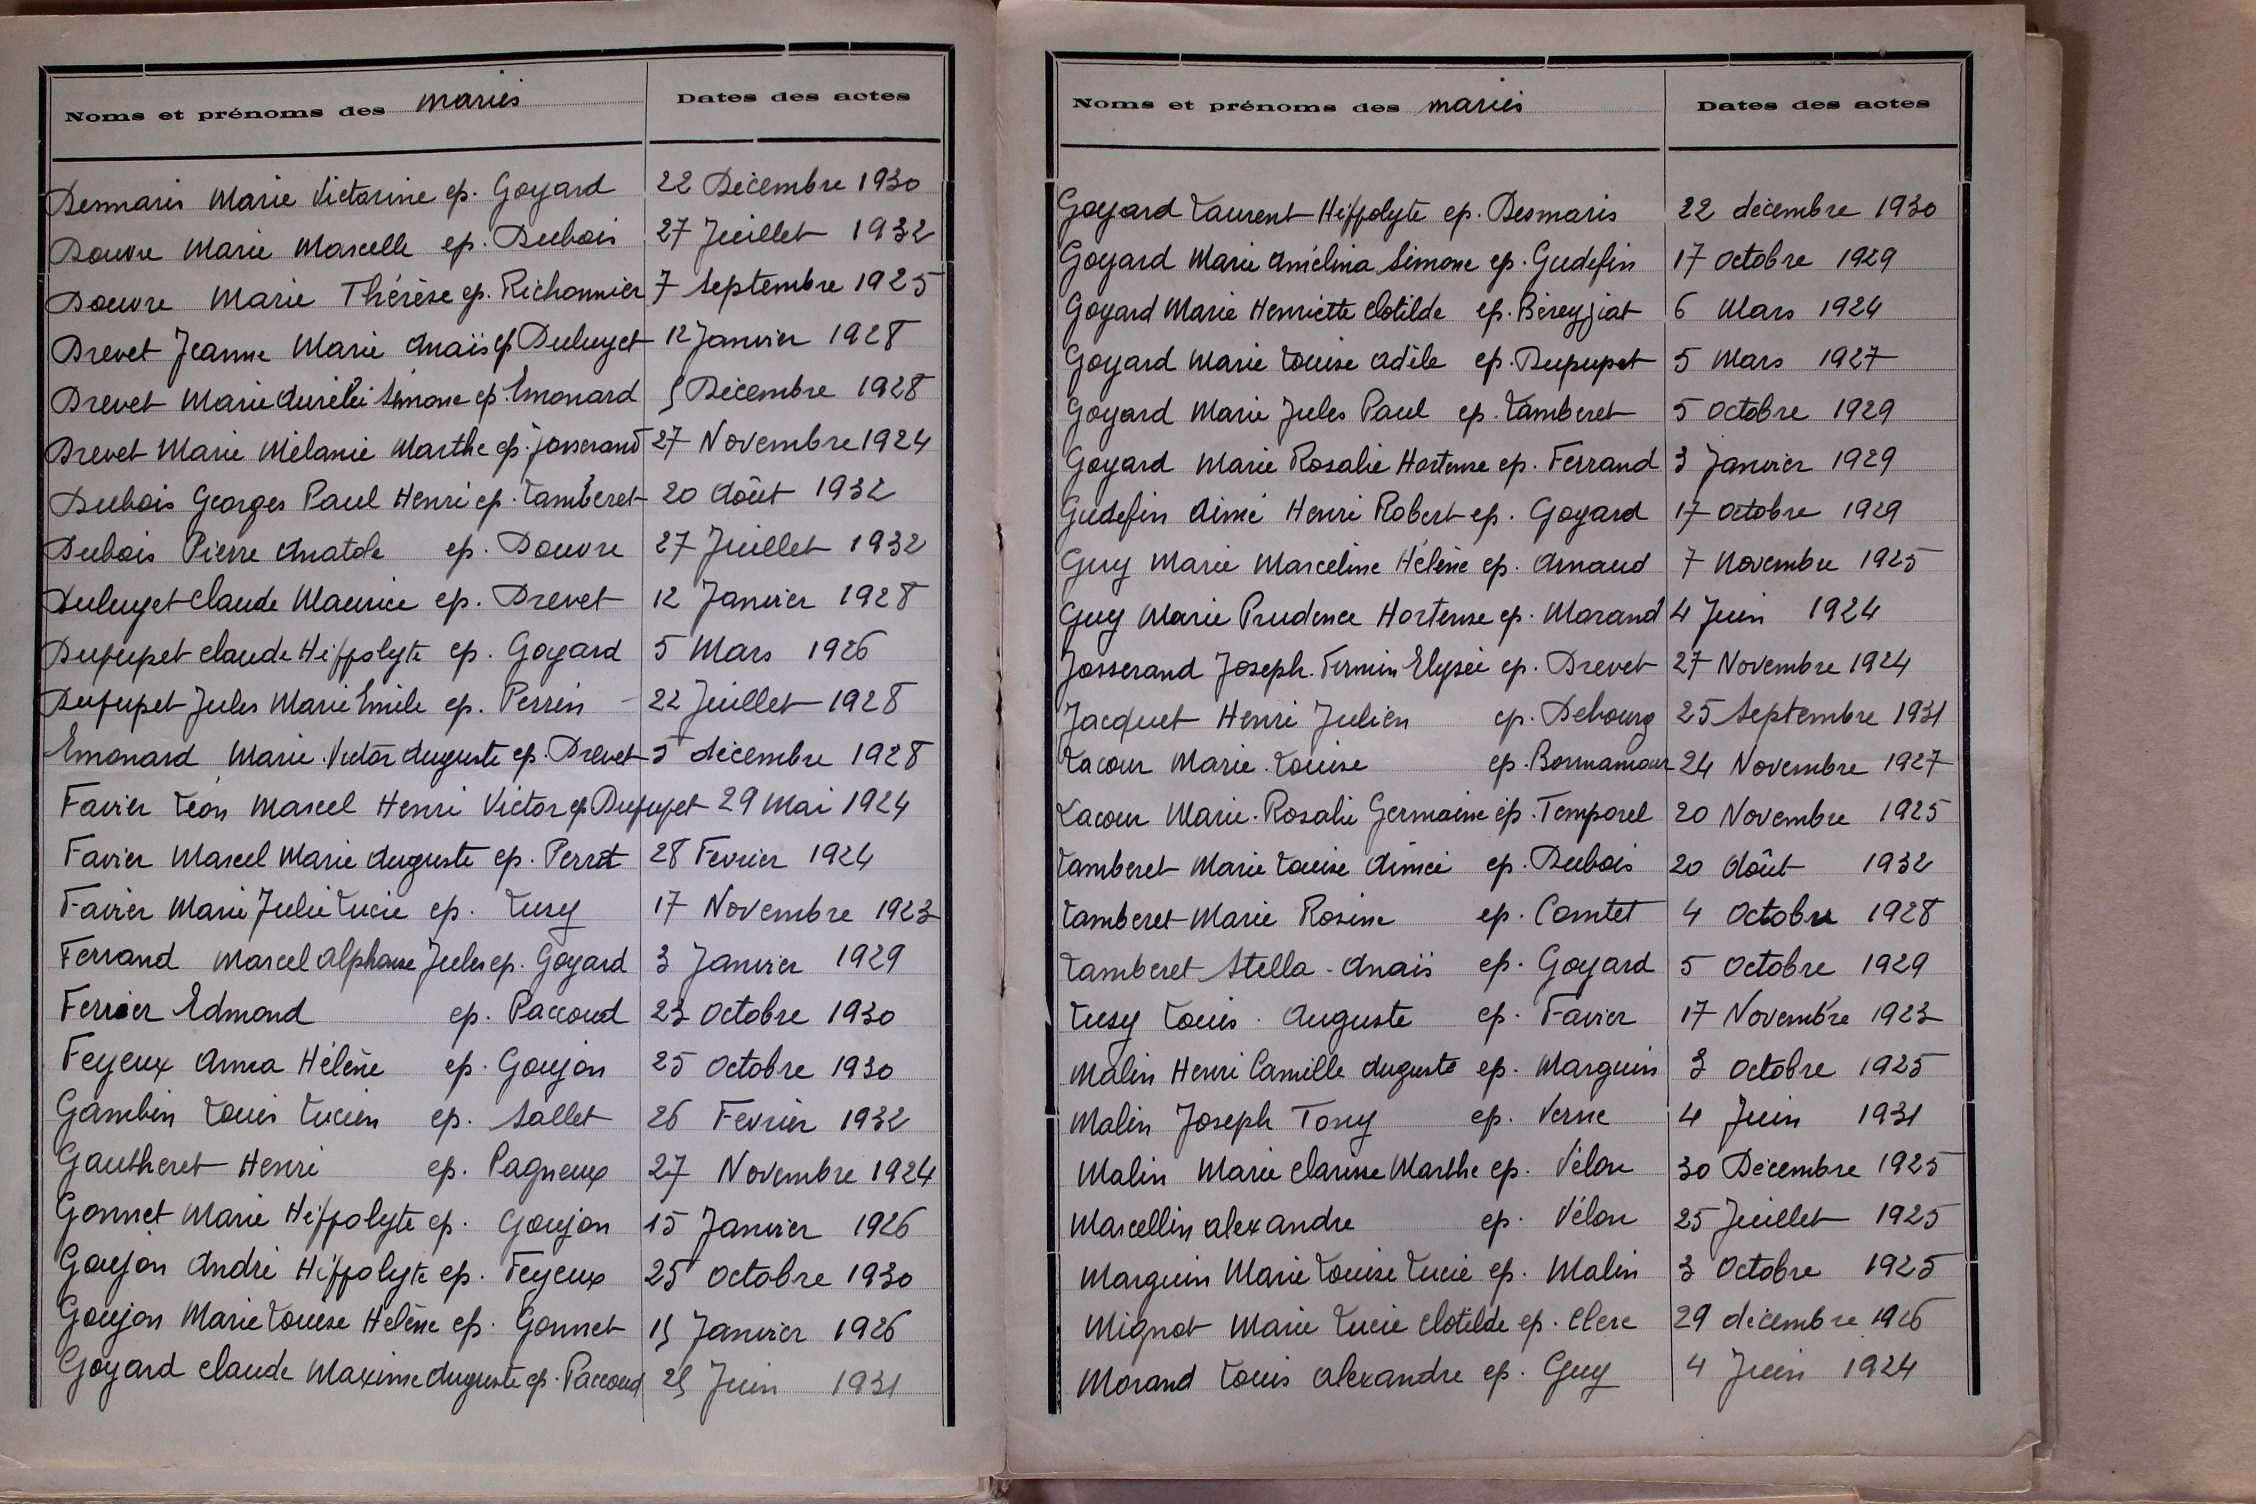 Noms et prénoms des mariés Dates des actes
Desmaris Marie Victorine ep. Goyard 22 Décembre 1930
Douvre Marie Marcelle ep. Dubois 27 Juillet 1932
Douvre Marie Thérèse ep. Richonnier 7 Septembre 1925
Drevet Jeanne Marie Anaïs ep Duluyet 12 Janvier 1928
Drevet Marie Aurélie Simone ep. Emonard 5 Décembre 1928
Drevet Marie Mélanie Marthe ep. Josserand 27 Novembre 1924
Dubois Georges Paul Henri ep. Lamberet 20 Août 1932
Dubois Pierre Anatole ep. Douvre 27 Juillet 1932
Duluyet Claude Maurice ep. Drevet 12 Janvier 1928
Dupupet Claude Hippolyte ep. Goyard 5 Mars 1926
Dupupet Jules Marie Emile ep. Perrin - 22 Juillet 1928
Emonard Marie Victor Auguste ep. Drevet 5 décembre 1928
Favier Léon Marcel Henri Victor ep Dupupet 29 Mai 1924
Favier Marcel Marie Auguste ep. Perret 28 Fevrier 1924
Favier Marie Julie Lucie ep. Lusy 17 Novembre 1923
Ferrand Marcel Alphonse Jules ep. Goyard 3 Janvier 1929
Ferrier Edmond ep. Paccoud 23 Octobre 1930
Feyeux Anna Hélène ep. Goujon 25 Octobre 1930
Gambin Louis Lucien ep. Sallet 26 Fevrier 1932
Gautheret Henri ep. Pagneux 27 Novembre 1924
Gonnet Marie Hippolyte ep. Goujon 15 Janvier 1926
Goujon André Hippolyte ep. Feyeux 25 Octobre 1930
Goujon Marie Louise Hélène ep. Gonnet 15 Janvier 1926
Goyard Claude Maxime Auguste ep. Paccoud 25 Juin 1931
Noms et prénoms des mariés Dates des actes
Goyard Laurent Hippolyte ep. Desmaris 22 décembre 1930
Goyard Marie Amélina Simone ep. Gudefin 17 Octobre 1929
Goyard Marie Henriette Clotilde ep. Béreyziat 6 Mars 1924
Goyard Marie Louise Adèle ep. Dupupet 5 Mars 1927
Goyard Marie Jules Paul ep. Lamberet 5 Octobre 1929
Goyard Marie Rosalie Hortense ep. Ferrand 3 Janvier 1929
Gudefin Aimé Henri Robert ep. Goyard 17 Octobre 1929
Guy Marie Marceline Hélène ep. Arnaud 7 Novembre 1925
Guy Marie Prudence Hortense ep. Morand 4 Juin 1924
Josserand Joseph Firmin Elysée ep. Drevet 27 Novembre 1924
Jacquet Henri Julien ep. Debourg 25 Septembre 1931
Lacour Marie. Louise ep. Bonnamour 24 Novembre 1927
Lacour Marie. Rosalie Germaine ep. Temporel 20 Novembre 1925
Lamberet Marie Louise Aimée ep. Dubois 20 Août 1932
Lamberet Marie Rosine ep. Comtet 4 Octobre 1928
Lamberet Stella - Anaïs ep. Goyard 5 Octobre 1929
Lusy Louis. Auguste ep. Favier 17 Novembre 1923
Malin Henri Camille Auguste ep. Marguin 3 Octobre 1925
Malin Joseph Tony ep. Verne 4 Juin 1931
Malin Marie Clarisse Marthe ep. Vélon 30 Décembre 1925
Marcellin Alexandre ep. Vélon 25 Juillet 1925
Marguin Marie Louise Lucie ep. Malin 3 Octobre 1925
Mignot Marie Lucie Clotilde ep. Clerc 29 décembre 1926
Morand Louis Alexandre ep. Guy 4 Juin 1924